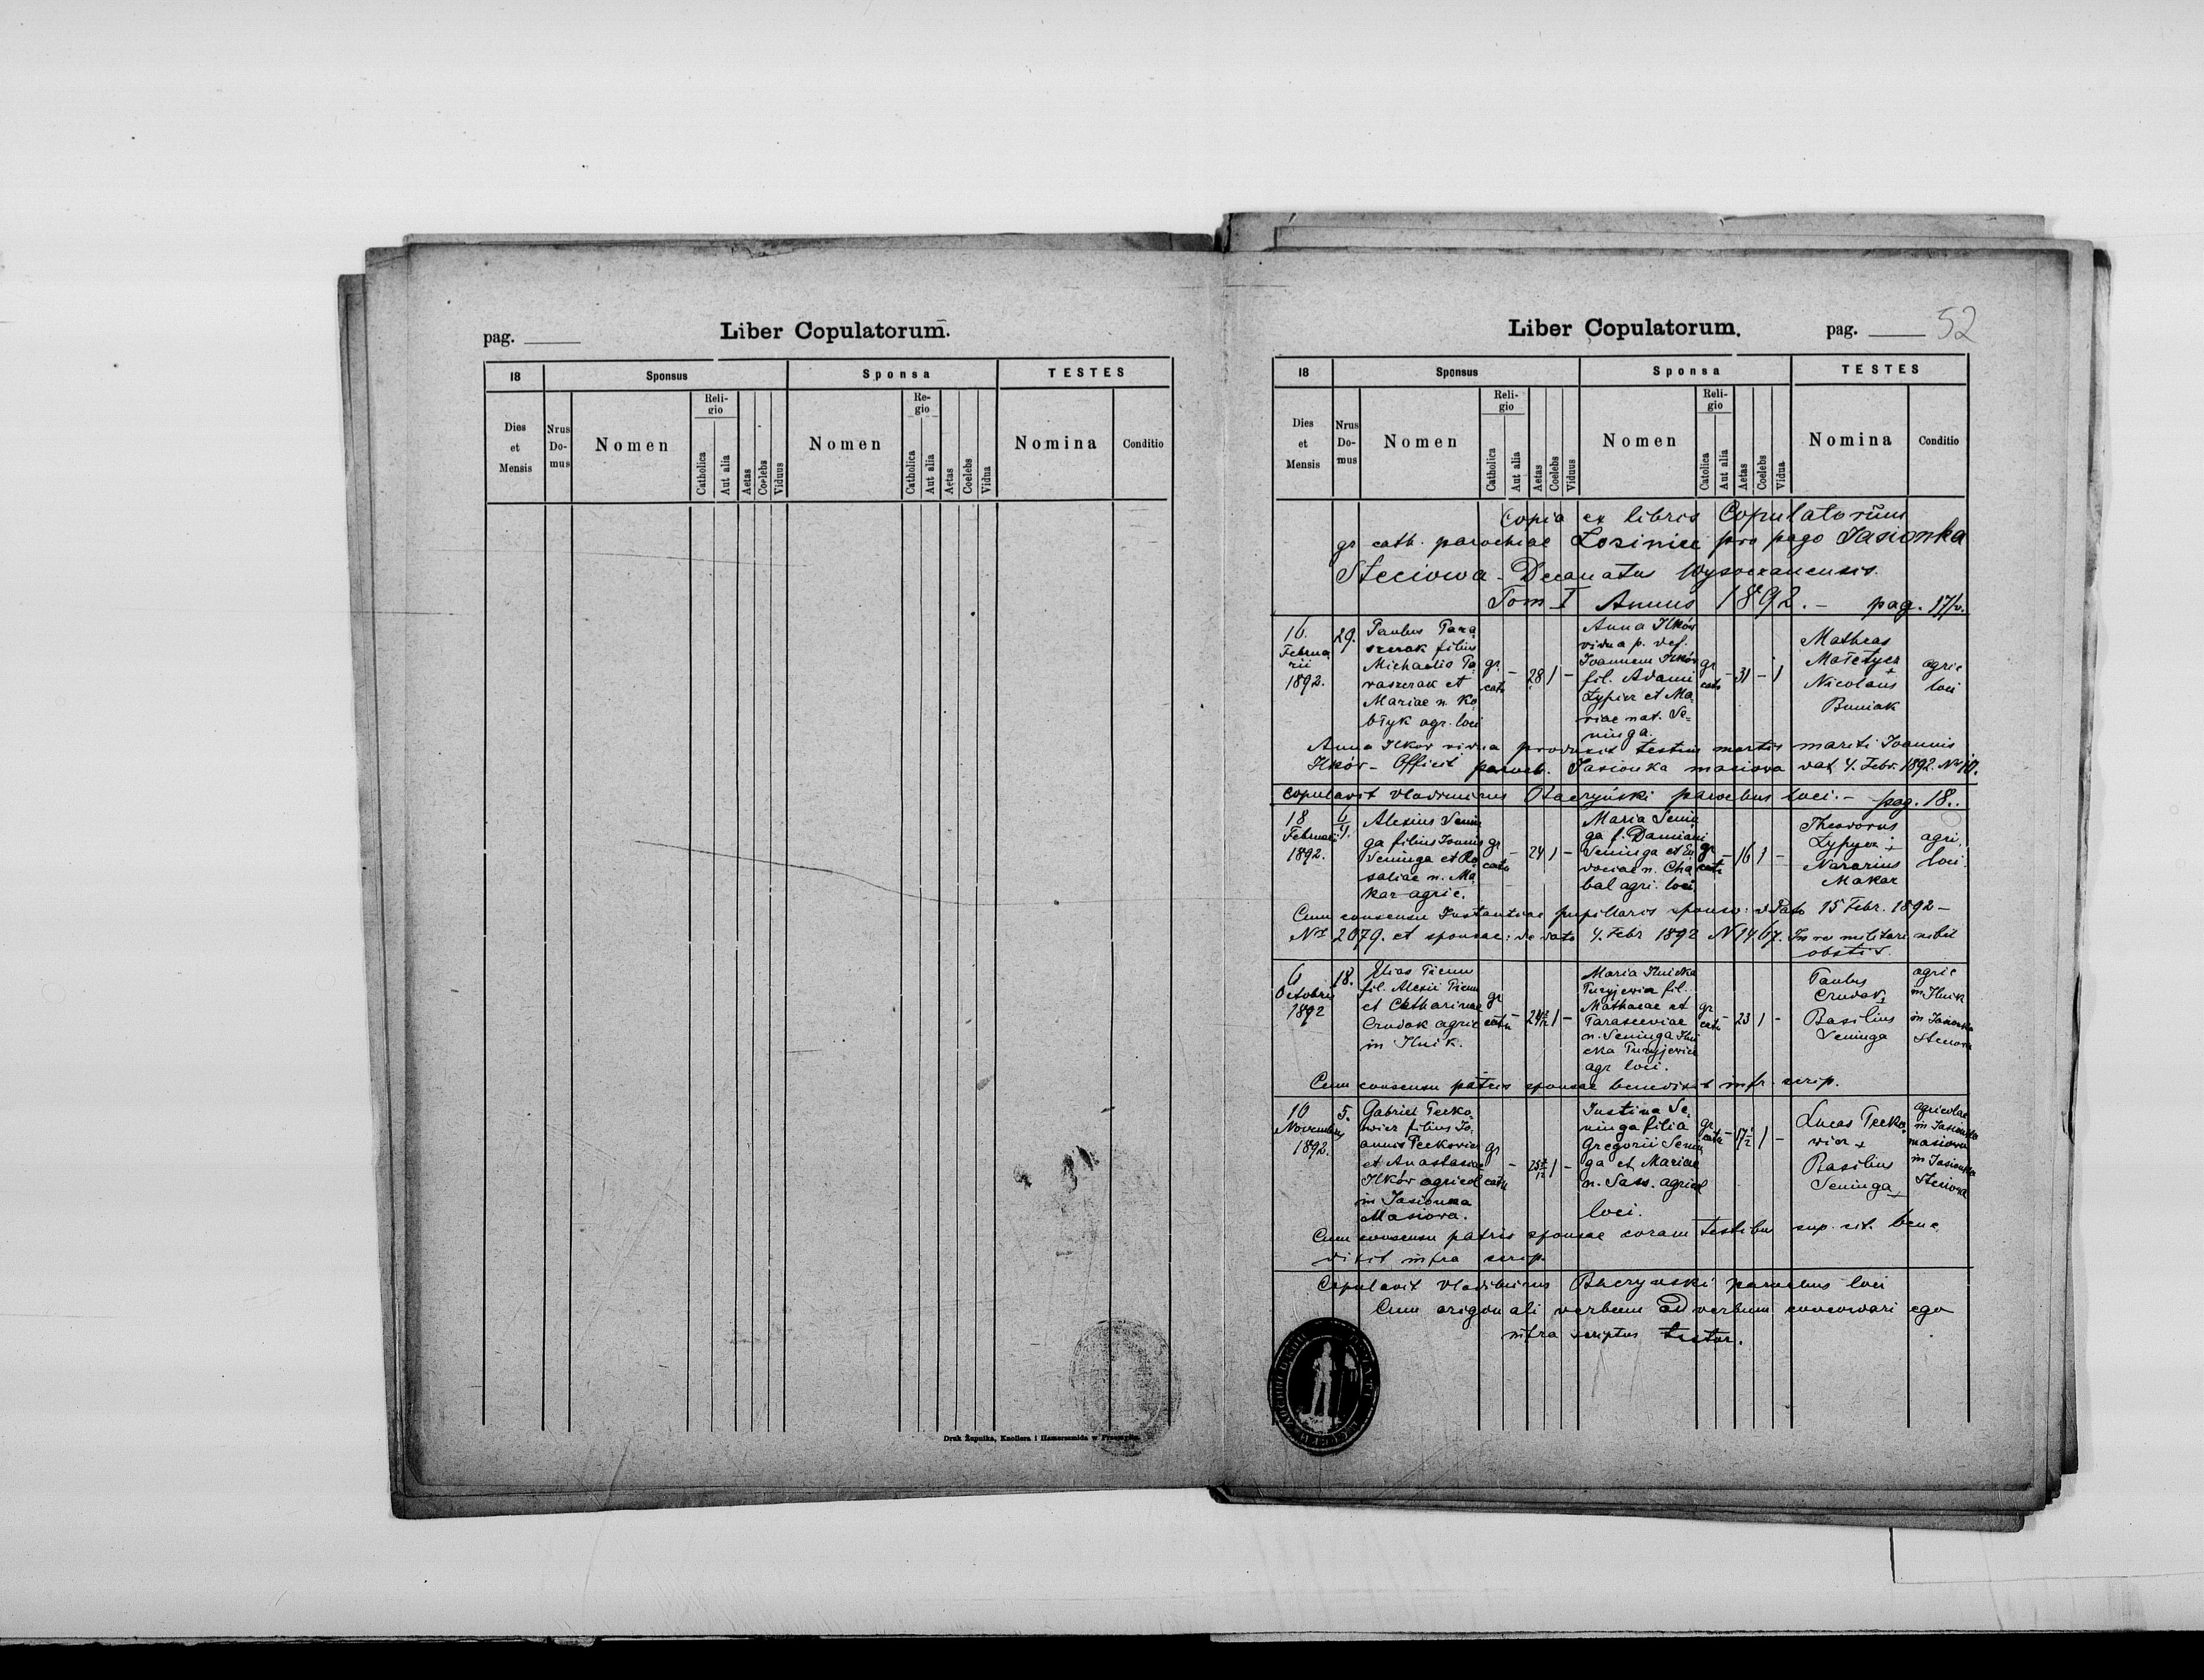 pag.
Liber Copulatorum.
18
Sponsus
Sponsa
TESTES
Dies et Mensis
Nrus Domus
Nomen
Religio
Catholica
Aut alia
Aetas
Coelebs
Viduus
Nomen
Religio
Catholica
Aut alia
Aetas
Coelebs
Vidua
Nomina
Conditio
Druk Żupnika, Knollera i Hamerszmida w Przemyślu.
Liber Copulatorum.
pag. 52
18
Sponsus
Sponsa
TESTES
Dies et Mensis
Nrus Domus
Nomen
Religio
Catholica
Aut alia
Aetas
Coelebs
Viduus
Nomen
Religio
Catolica
Aut alia
Aetas
Coelebs
Vidua
Nomina
Conditio
Copia ex libris Copulatorum
gr cath. parochiae Łosiniec pro pago Jasionka
Steciowa - Decanatus Wysoczanensis.
Tom I Annus 1892. - pag. 17/v.
16.
Februa
rii
1892.
29.
Paulus Para
szczak filius
Michaelis Pa
raszczak et
Mariae n. Ko
błyk agr. loci
gr
cath
-
28
1
-
Anna Ilków
vidua p. def.
Joannem Ilków
fil. Adami
Łypier et Ma-
riae nat. Se-
ninga.
gr
cath
-
31
-
1
Matheas
Małetycz
+
Nicolaus
Buniak
agric
loci
Anna Ilkow vidua produxit testim mortis mariti Joannis
Ilków - Officii paroch. Jasionka masiowa dat 4. Febr. 1892. Nr 10.
Copulavit Vladimirus Baczyński parochus loci. - pag. 18.
18
Februarii
1892.
Alexius Senin
ga filius Joannis
Seninga et Ro
saliae n. Ma
kar agric.
gr
cath
-
24
1
-
Maria Senin
ga f. Damiani
Seninga et Eu
dociae n. Cha
bal agri. loci
gr
cath
-
16
1
-
Theodorus
Łypycz +
Nazarius
Makar
agri.
loci.
Cum consensu Instantiae pupillaris sponsi: de dato 15 Febr. 1892 -
Nr 2079. et sponsae: de dato 4. Febr 1892 N 1467. In re militari nihil
obstit.
6
Octobris
1892
18.
Elias Picun
fil. Alexii Picun
et Catharinae
Crudak agric
in Ilnik.
gr
cath
-
1
-
Maria Ilnicka
Turyjewicz fil.
Mathaeae et
Parascevviae
n. Seninga Ilni
cka Turyjewicz
agr loci.
gr
cath
-
23
1
-
Paulus
Crudak +
Basilius
Seninga
agric
in Ilnik
in Jasionka
Steciowa
Cum consensu patris sponsae benedixit infr. scrip.
10
Novembris
1892.
5.
Gabriel Pecko-
wicz filius Jo-
annis Peckowicz
et Anastasiae
Ilków agricol
in Jasionka
Masiowa.
gr
cath
-
1
-
Justina Se-
ninga filia
Gregorii Senin
ga et Mariae
n. Sass. agricol
loci.
gr
cath
-
1
-
Lucas Pecko-
wicz +
Basilius
Seninga +
agricolae
in Jasionka
masiowa
in Jasionka
Steciowa
Cum consensu patris sponsae coram testibus sup. cit. bene-
dixit infra scrip.
Copulavit Vladimirus Baczynski parochus loci
Cum originali verbum ad verbum concordari ego
infra scriptus testor.